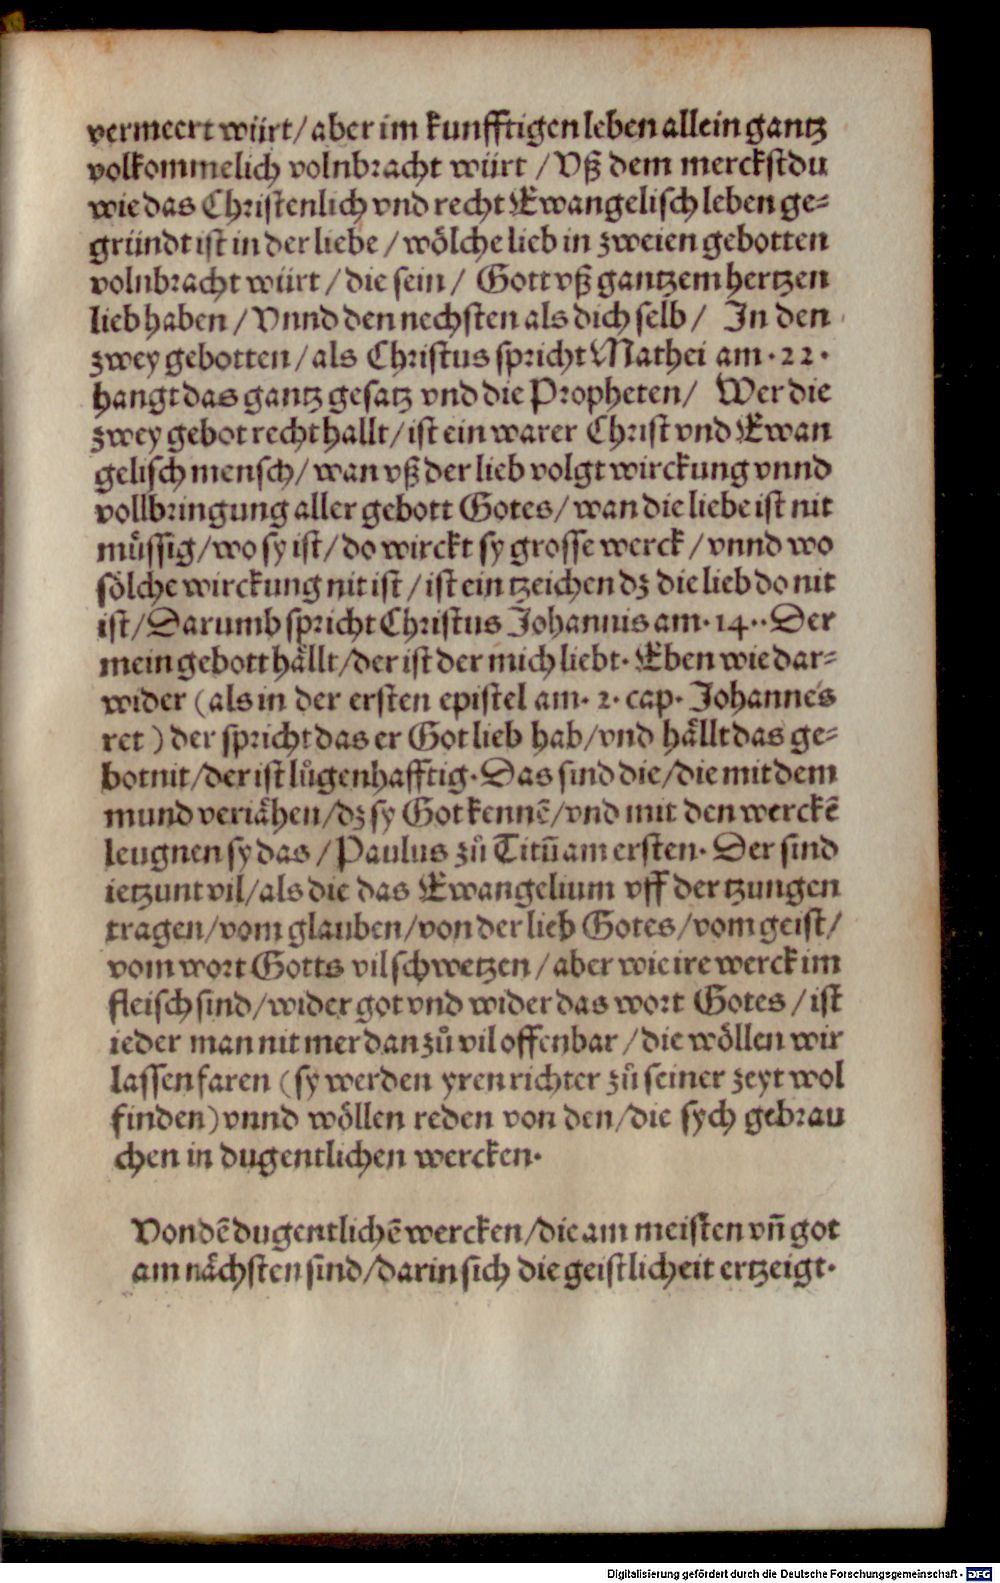 vermeert würt/ aber im kunfftigen leben allein gantz
volkommelich volnbracht würt / Vß dem merckstdu
wie das Christenlich vnd recht Ewangelisch leben ge=
gründt ist in der liebe / wölche lieb in zweien gebotten
volnbracht würt / die sein / Gott vß gantzem hertzen
lieb haben / Vnnd den nechsten als dich selb / In den
zwey gebotten / als Christus spricht Mathei am .22.
hangt das gantz gesatz vnd die Propheten/ Wer die
zwey gebot recht hallt/ ist ein warer Christ vnd Ewan
gelisch mensch/ wan vß der lieb volgt wirckung vnnd
vollbringung aller gebott Gotes/ wan die liebe ist nit
müssig/ wo sy ist/ do wirckt sy grosse werck / vnnd wo
sölche wirckung nit ist / ist ein tzeichen dz die lieb do nit
ist/ Darumb spricht Christus Johannis am .14.. Der
mein gebott hällt/ der ist der mich liebt. Eben wie dar=
wider (als in der ersten epistel am .2. cap. Johannes
ret ) der spricht das er Got lieb hab/ vnd hällt das ge=
bot nit/ der ist lügenhafftig. Das sind die/ die mit dem
mund veriähen/ dz sy Got kennē/ vnd mit den werckē
leugnen sy das / Paulus zů Titū am ersten. Der sind
ietzunt vil/ als die das Ewangelium vff der tzungen
tragen/ vom glauben/ von der lieb Gotes/ vom geist/
vom wort Gotts vil schwetzen / aber wie ire werck im
fleisch sind/ wider got vnd wider das wort Gotes / ist
ieder man nit mer dan zů vil offenbar / die wöllen wir
lassen faren (sy werden yren richter zů seiner zeyt wol
finden) vnnd wöllen reden von den/ die sych gebrau
chen in dugentlichen wercken.
Von dē dugentlichē wercken/ die am meisten vñ got
am nächsten sind/ darin sich die geistlicheit ertzeigt.
Digitalisierung gefördert durch die Deutsche Forschungsgemeinschaft - DFG